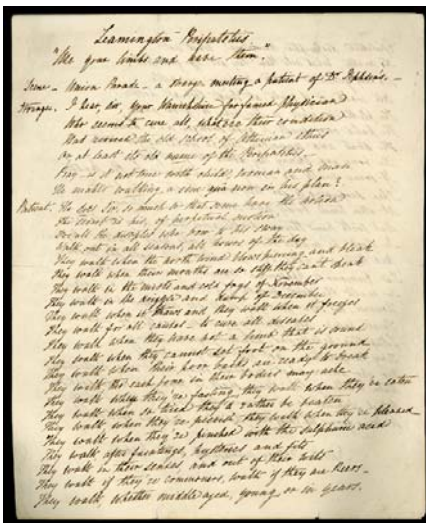 Leamington Peripatetics
"Use your limbs and have them."
Scene - Union Parade - a stranger meeting a patient of Dr Jephson's. -
Stranger. I hear, Sir, your Warwickshire far famed Physician
Who seems to cure all, whate'er their condition
Has revived the old school of Athenian
or at least its old name of the Peripatetic,
Pray is it not true with child, woman and man
He makes walking a sine qua non in his plan?
Patient. He does Sir, so much so that some have the notion
The secret is his, of perpetual motion
For all the disciples who bow to his sway
Walk out in all seasons, all hours of the day
They walk when the north wind blows piercing and bleak
They walk when their mouths are so stiff they can't speak
They walk in the mists and cold fogs of November
They walk in the and damp of December
They walk when it thaws and they walk when it freezes
They walk for all causes - to cure all diseases
They walk when they have not a limb that is sound
They walk when they cannot set foot on the ground
They walk when their poor backs are ready to break
They walk tho' each bone in their bodies may ache
They walk when they're fasting, they walk when they've eaten
They walk when so tired they'd rather be beaten
They walk when they're peevish, they walk when they're pleased
They walk when they're pinched with the sulphuric acid
They walk after faintings, hysterics and fits
They walk in their senses, and out of their wits
They walk if they're commoners, walk if they are Peers -
They walk, whether middle aged, young, or in years.